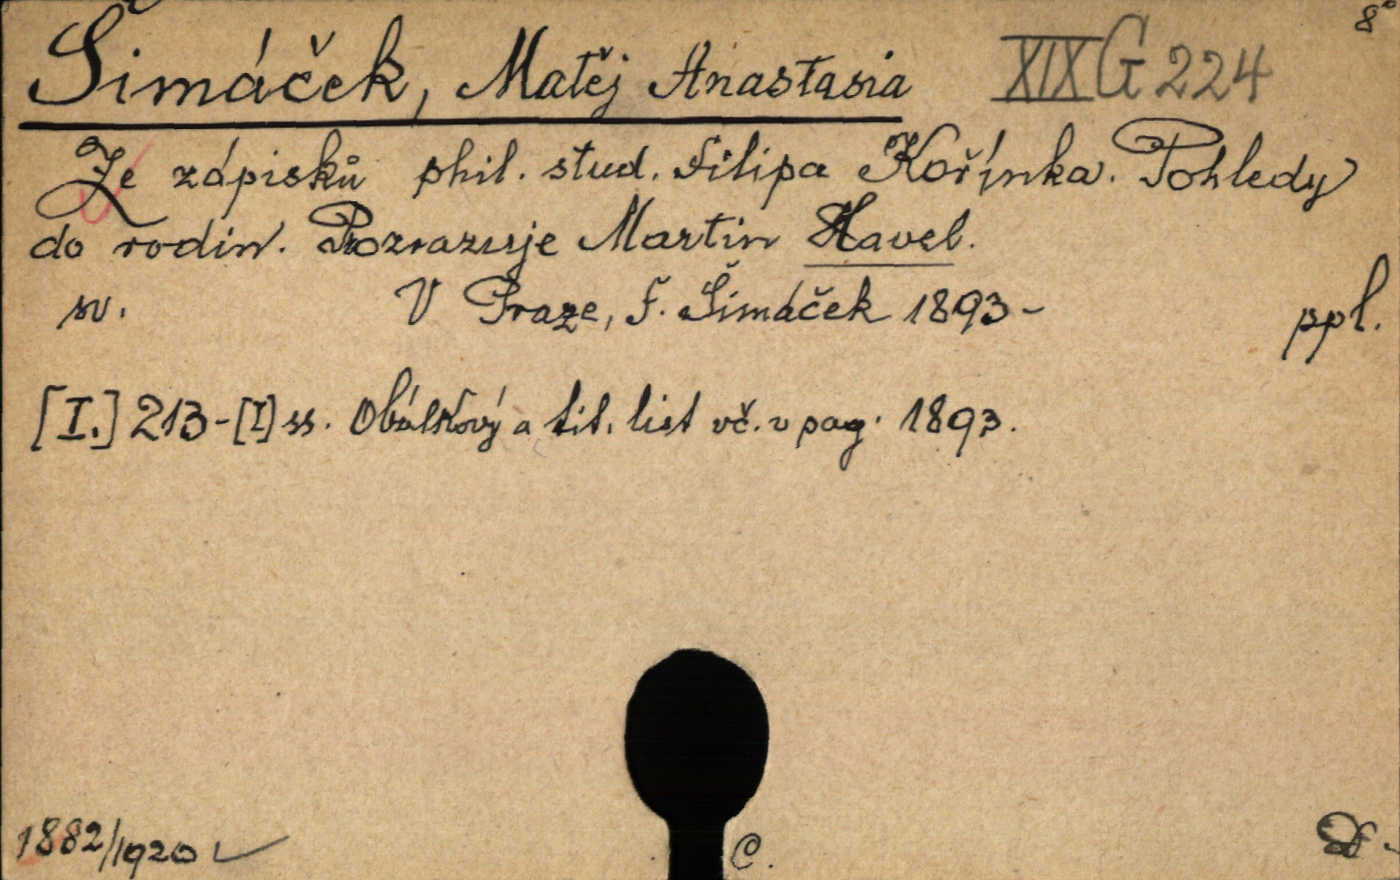 8°
Šimáček, Matěj Anastasia XIX G 224
Ze zápisků phil. stud. Filipa Kořínka. Pohledy
do rodin. Rozrazuje Martin Havel.
sv. V Praze, F. Šimáček 1893- ppl.
[I.] 213-[I] ss. Obálkový a tit. list vč. v pag. 1893.
1882/1920
C.